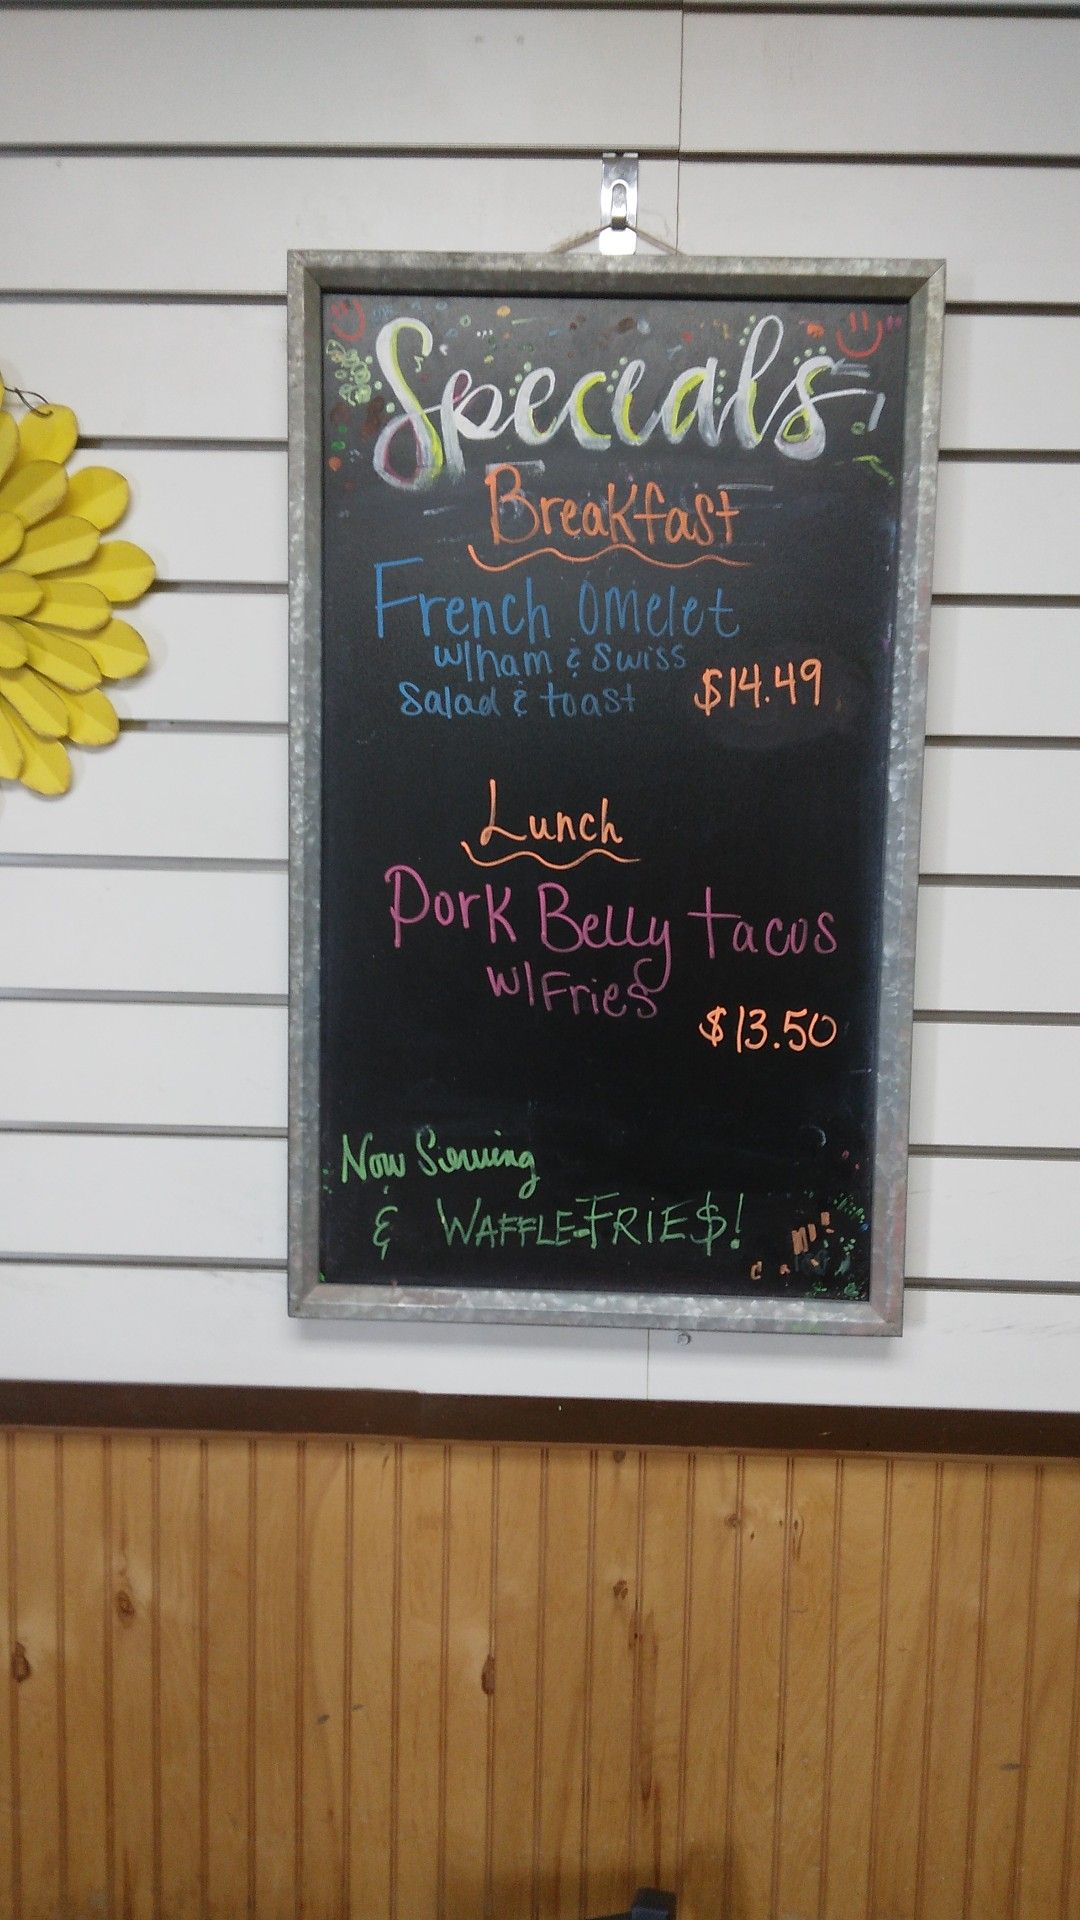 Specials
Breakfast
French Omelet
w/ham & Swiss
Salad & toast $14.49
Lunch
Pork Belly tacos
w/Fries
$13.50
Now Serving
& WAFFLE-FRIE$!